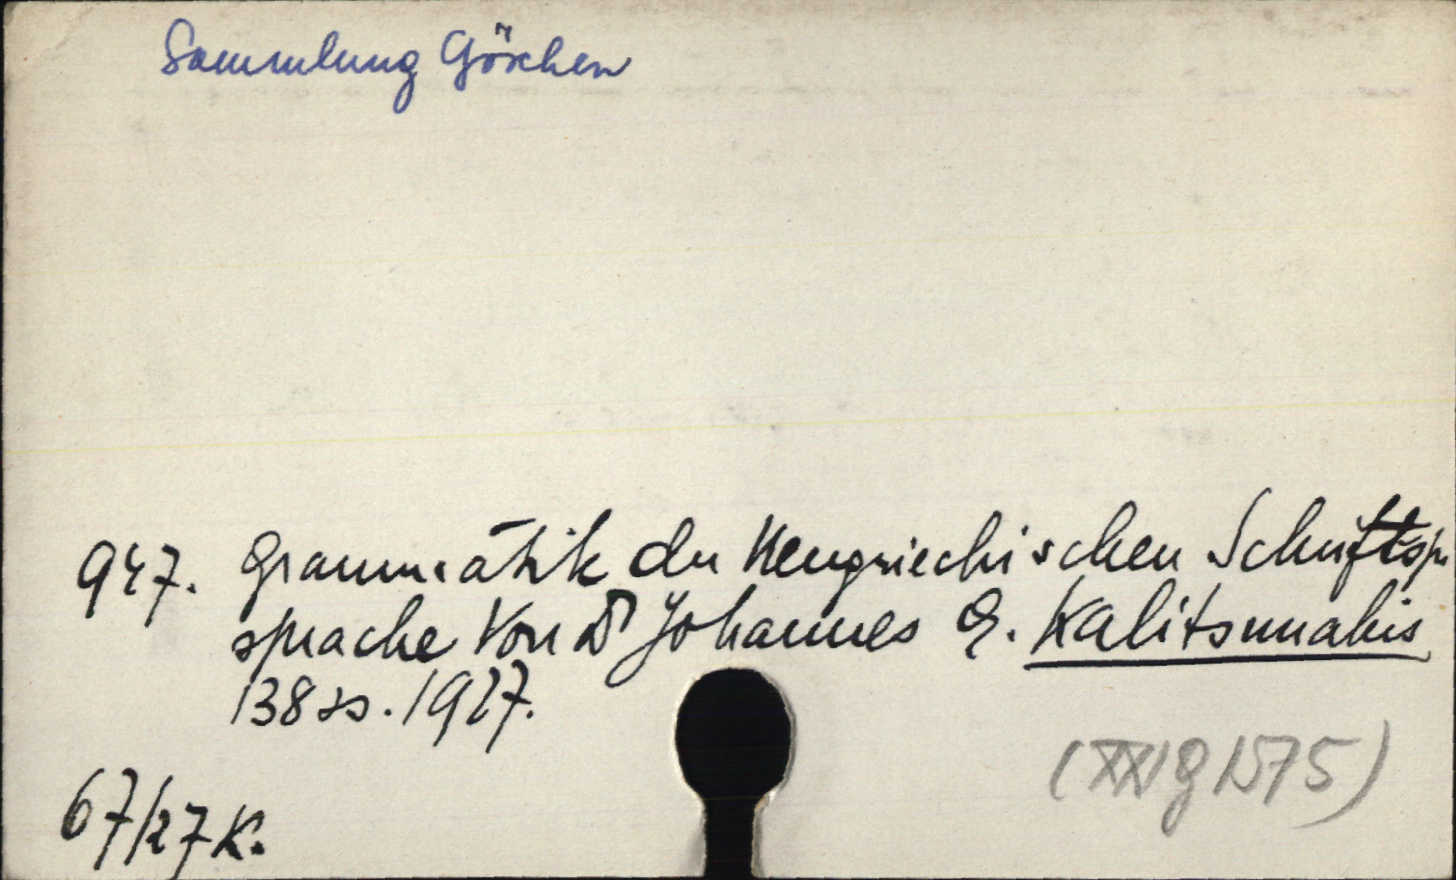 Sammlung Göschen
947. Grammatik der Neugriechischen Schrift
sprache Von Dr Johannes E. Kalitsunakis
138 ss. 1927.
67/27 K.